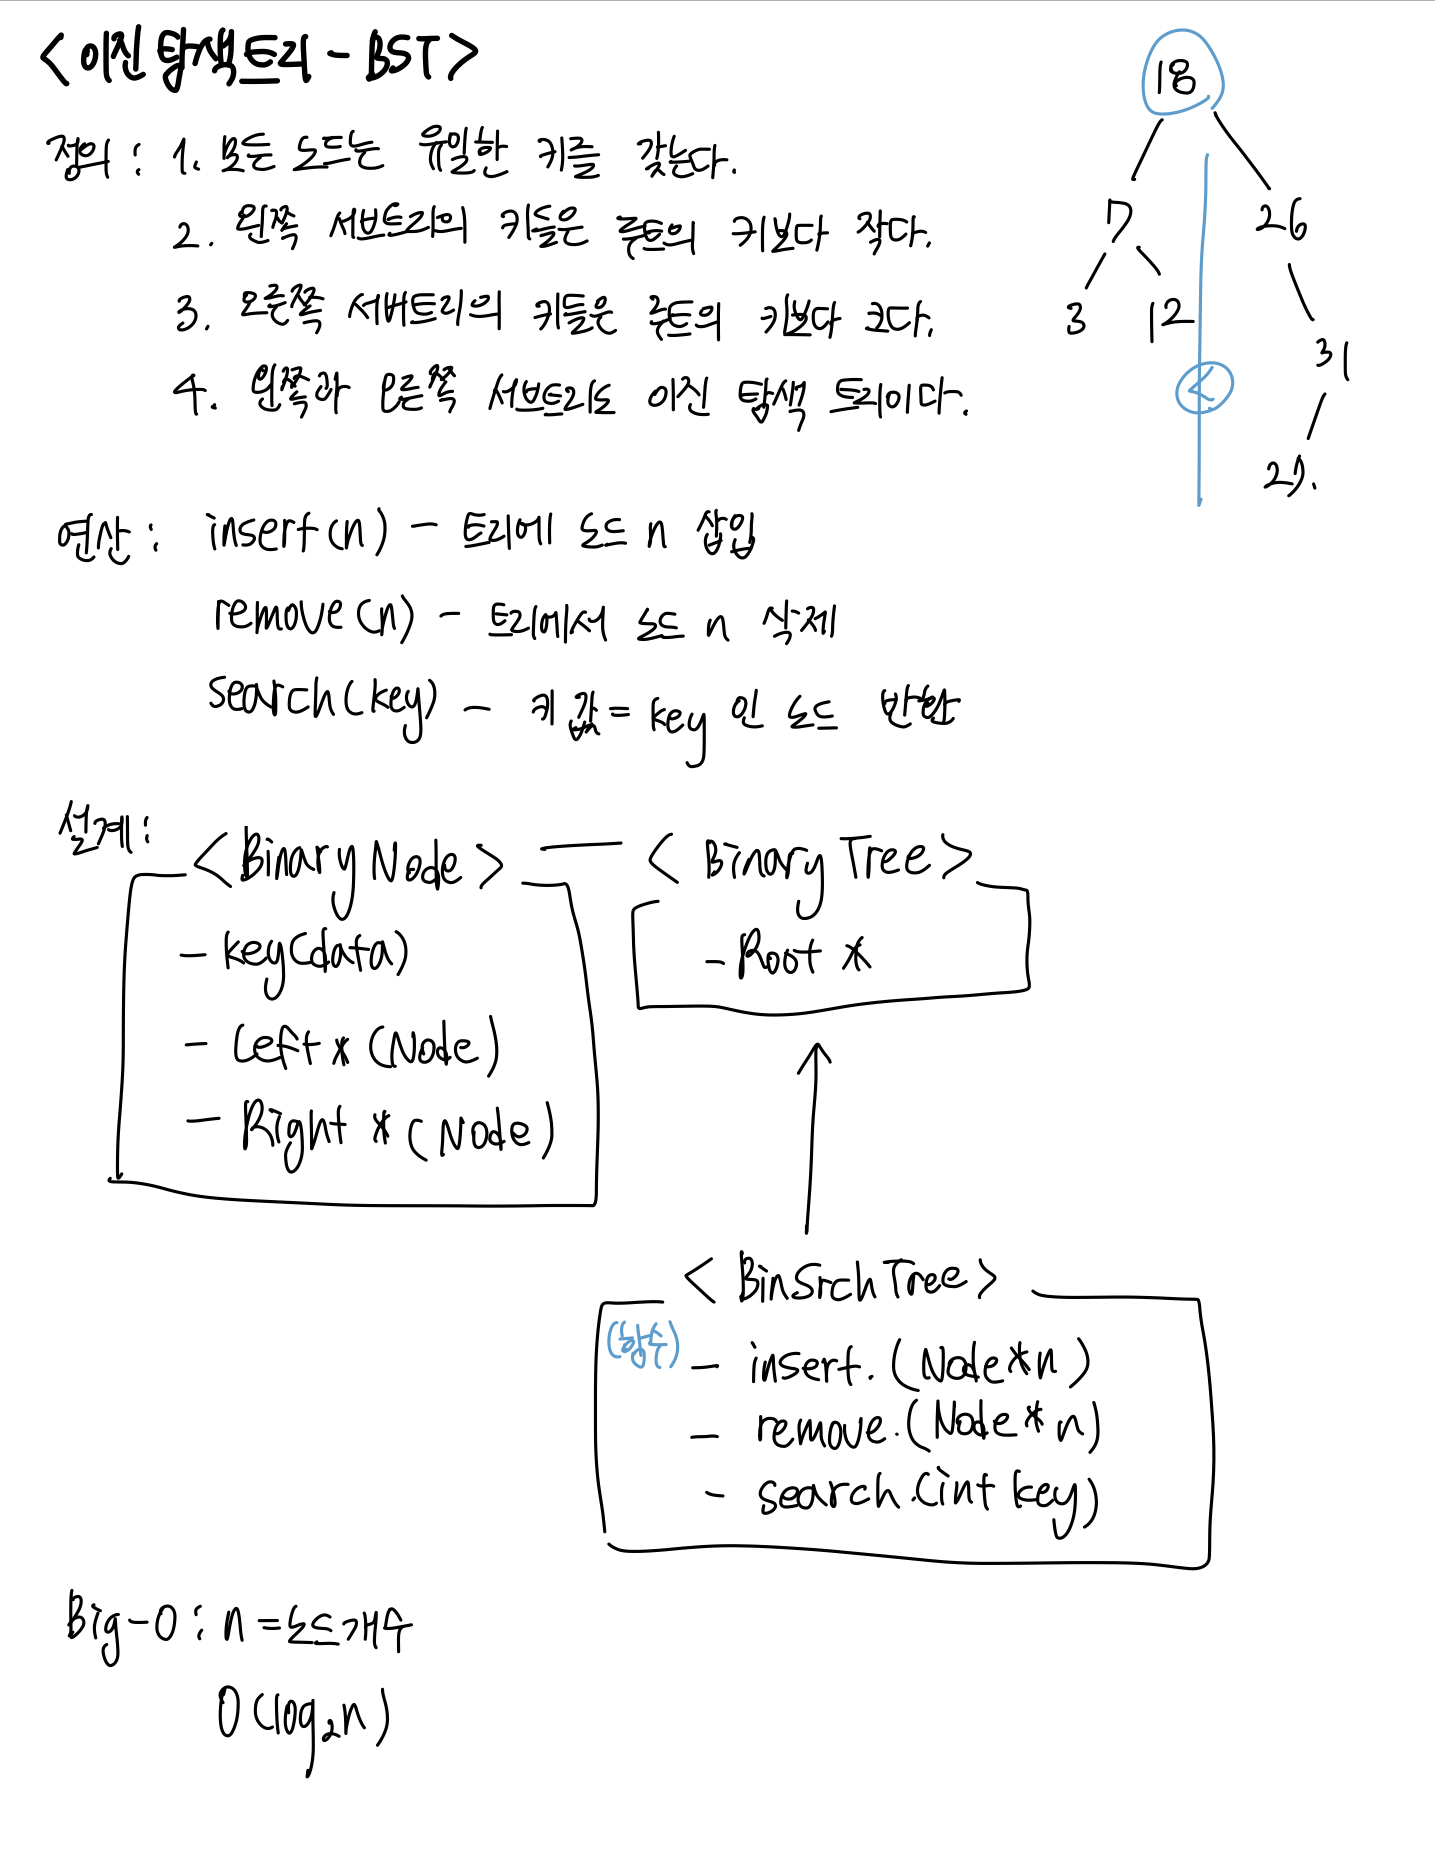 <이진 탐색트리 - BST>
정의 : 1. 모든 노드는 유일한 키를 갖는다.
2. 왼쪽 서브트리의 키들은 루트의 키보다 작다.
3. 오른쪽 서버트리의 키들은 루트의 키보다 크다.
4. 왼쪽과 오른쪽 서브트리도 이진 탐색 트리이다.
18
7 26
3 12
31
<
27.
연산 : insert(n) - 트리에 노드 n 삽입
remove(n) - 트리에서 노드 n 삭제
search(key) - 키 값 = key 인 노드 반환
설계 :
<Binary Node>
- key(data)
- Left * (Node)
- Right * (Node)
<Binary Tree>
- Root *
<BinSrchTree>
(함수)
- insert.(Node*n)
- remove.(Node*n)
- search.(int key)
Big-O : n = 노드개수
O(log₂n)